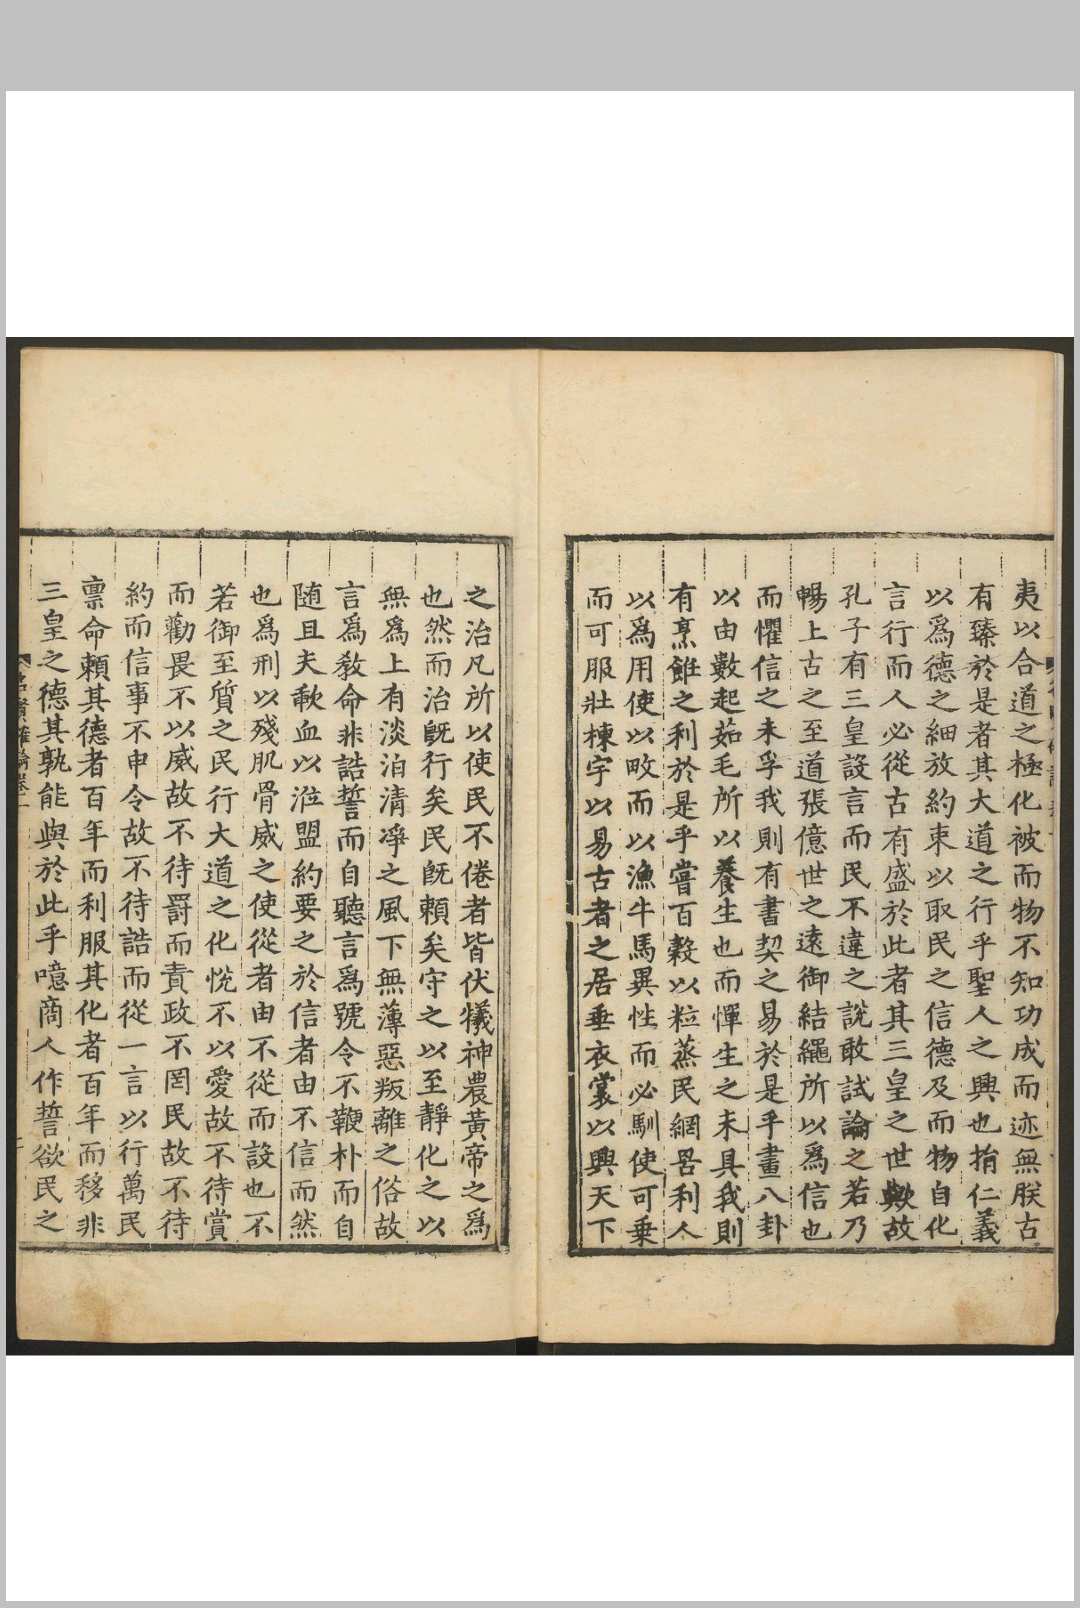 夷以合道之極化被而物不知功成而迹無朕古
有臻於是者其大道之行乎聖人之興也揹仁義
以爲德之細放約束以取民之信德及而物自化
言行而人必從古有盛於此者其三皇之世歟故
孔子有三皇設言而民不違之說敢試論之若乃
暢上古之至道張億世之遠御結繩所以爲信也
而懼信之未孚我則有書契之易於是乎畫八卦
以由數起茹毛所以養生也而憚生之未具我則
有烹餁之利於是乎嘗百穀以粒蒸民網罟利人
以爲用使以畋而以漁牛馬異性而必馴使可乗
而可服壯棟宇以易古者之居垂衣裳以興天下
之治凡所以使民不倦者皆伏犧神農黃帝之爲
也然而治旣行矣民旣賴矣守之以至靜化之以
無爲上有淡泊清凈之風下無薄惡叛離之俗故
言爲敎命非誥誓而自聽言爲號令不鞭朴而自
随且夫歃血以涖盟約要之於信者由不信而然
也爲刑以殘肌骨威之使從者由不從而設也不
若御至質之民行大道之化恱不以愛故不待賞
而勸畏不以威故不待罸而責政不罔民故不待
約而信事不申令故不待誥而從一言以行萬民
禀命賴其德者百年而利服其化者百年而移非
三皇之德其孰能與於此乎噫商人作誓欲民之